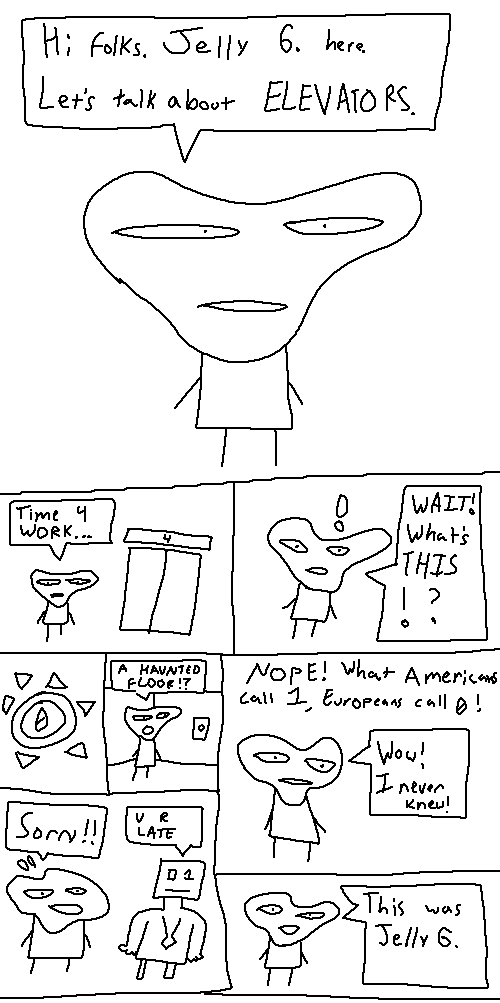 Hi folks. Jelly G. here.
Let's talk about ELEVATORS.
Time 4
WORK...
4
WAIT!
What's
THIS
! ?
0
A HAUNTED
FLOOR!?
0
NOPE! What Americans
call 1, Europeans call 0!
Wow!
I never
knew!
Sorry!!
U R
LATE
01
This was
Jelly G.